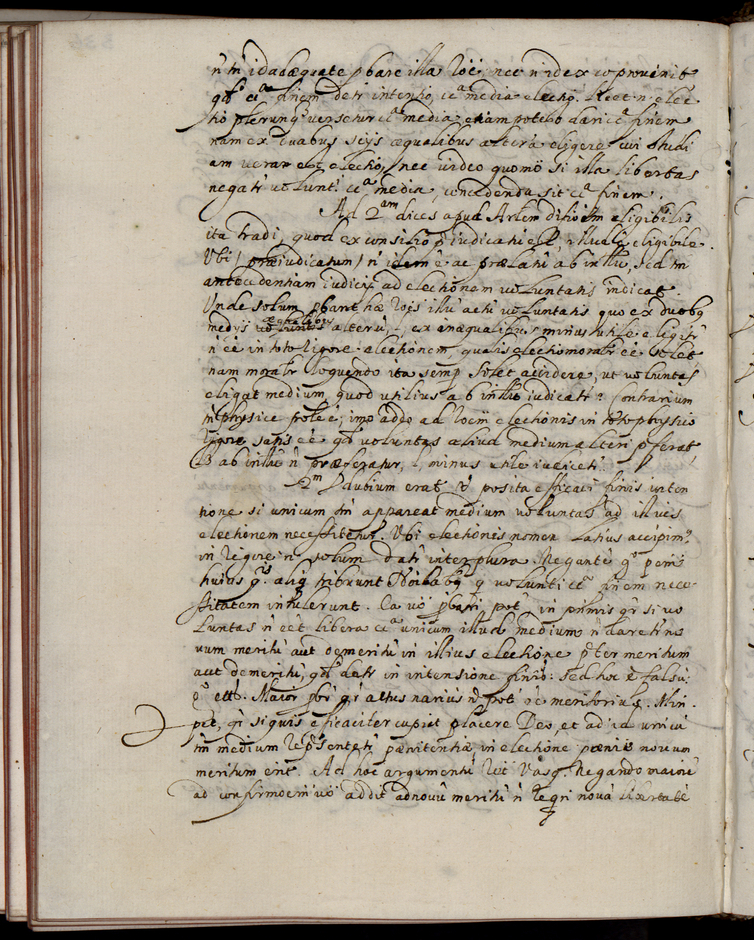 ñ tñ id adæquate pbare illa rõe; nec n. idex eo provenit
qđ ciª finem detr intentio, cª media electio. licet n. elec
tio plerunq versetur cª media, etiam potest dari cª finem
nam ex duabus æqualibus alterã eligere
am veram eẽt electio, nec video quomõ si illa libertas
negatr volunti cª media, concedenda sit cª finem.
Ad 2ᵃᵐ dices apud Arlem eligibilis
ita tradi, quod ex consilio præiudicatũ est, eligibile.
Ubi (præiudicatum) ñ idem ẽ ac prælatũ ab intllu, sed tñ
antecedentiam iudicij ad electionem voluntatis indicat.
Unde solum pbant hæ rões illũ actũ voluntatis quo ex duobq
medijs æqualibus alterũ, l. ex inæqualibus minus utile eligitr
ñ ẽẽ in toto rigore electionem, qualis electio moralr ẽẽ solet
nam moralr loquendo ita semp solet accidere, ut voluntas
eligat medium quod utilius ab intllu iudicatr. Contrarium
tñ physice potẽ ẽẽ, imo addo ad rõem electionis in toto physico
rigore satis ẽẽ qđ voluntas aliud medium alteri pferat
ab intllu ñ præferatur, l. minus utile iudicetr.
2ᵐ Dubium erat posita efficaci finis inten
tione si unicum tñ appareat medium voluntas ad illius
electionem necessitetur. Ubi electionis nomen latius accipimꝰ
in rigore n. solum datr inter plura. Negantẽ
huius aliq tribuunt q volunti cª finem nece-
ssitatem intulerunt. Ea võ pbari pot in primis qr si vo
luntas ñ eẽt libera cª unicum illud medium ñ daretr no
vum meritũ aut demeritũ in illius electione pter meritum
aut demeritũ, qđ datr in intensione finis: sed hoc ẽ falsũ;
gº ett. Maior ptr qr actus narius ñ pot ẽẽ meritorius. Min.
pat, qr si quis efficaciter cupiat placere Deo, et ad id unicũ
tñ medium repsentetr pænitentia in electione pæniæ novum
meritum erit. Ad hoc argumentũ Vasq. Negando maiorẽ
ad confirmoem võ addit ad novũ meritũ ñ reqri novã libertatẽ